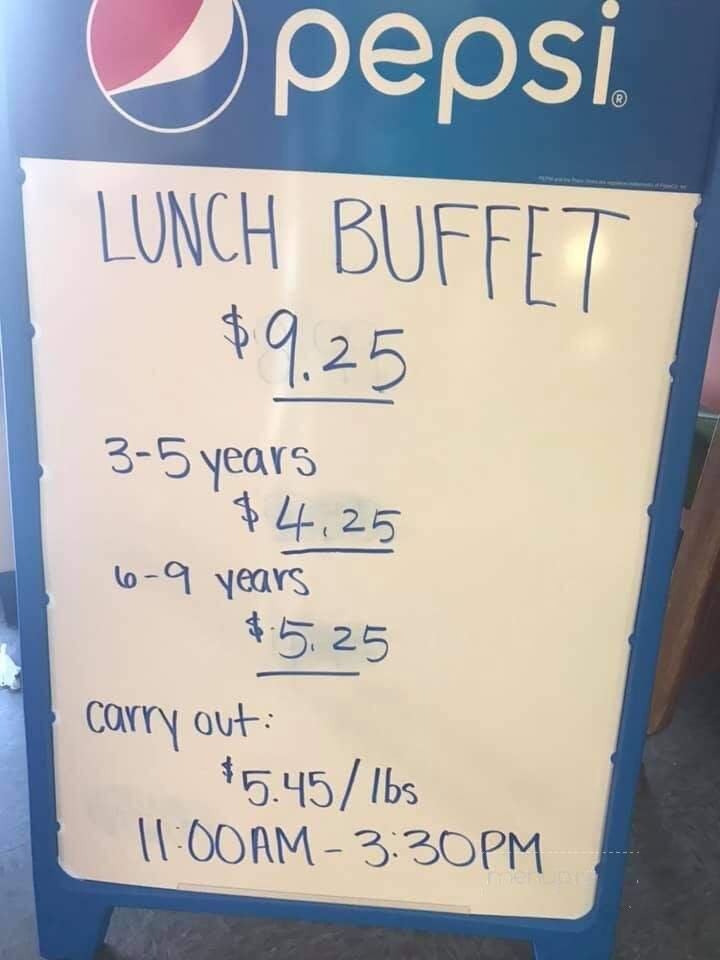 pepsi®
LUNCH BUFFET
$9.25
3-5 years
$4.25
6-9 years
$5.25
carry out:
$5.45/lbs
11:00AM-3:30PM